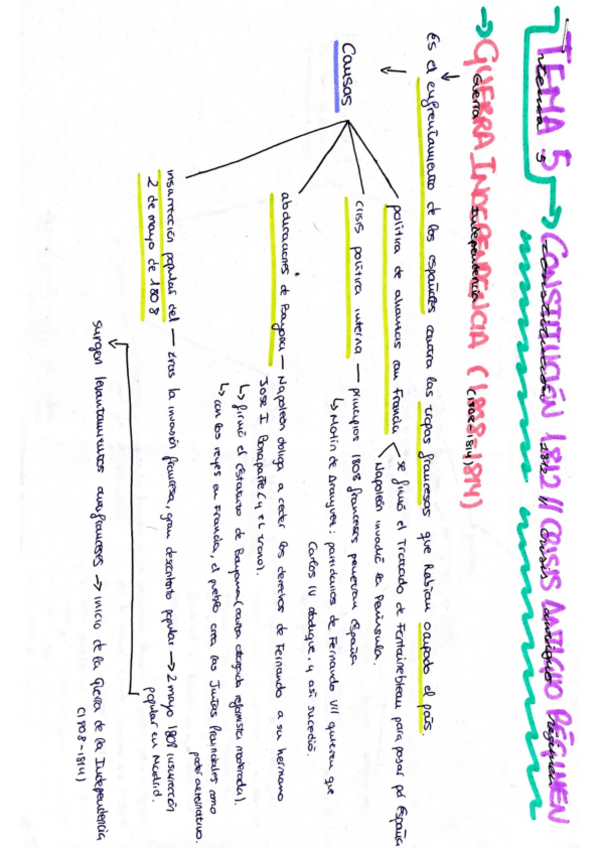 TEMA 5 → CONSTITUCIÓN 1812 // CRISIS ANTIGUO RÉGIMEN
→ GUERRA INDEPENDENCIA (1808-1814)
és el enfrentamiento de los españoles contra las tropas francesas que habían ocupado el país.
Causas
política de alianzas con Francia
se firmó el Tratado de Fontainebleau para pasar por España
Napoleón invadió la Península.
crisis política interna — principios 1808 franceses penetran España
↳ Motín de Aranjuez: partidarios de Fernando VII quieren que
Carlos IV abdique, y así sucedió.
abdicaciones de Bayona — Napoleón obliga a ceder los derechos de Fernando a su hermano
José I Bonaparte (y el trono).
↳ firmó el Estatuto de Bayona (carta otorgada reformista moderada).
↳ con los reyes en Francia, el pueblo crea las Juntas Provinciales como
poder alternativo.
insurrección popular del — tras la invasión francesa, gran descontento popular → 2 mayo 1808 insurrección
2 de mayo de 1808
popular en Madrid.
surgen levantamientos antifranceses → inicio de la Guerra de la Independencia
(1808-1814)